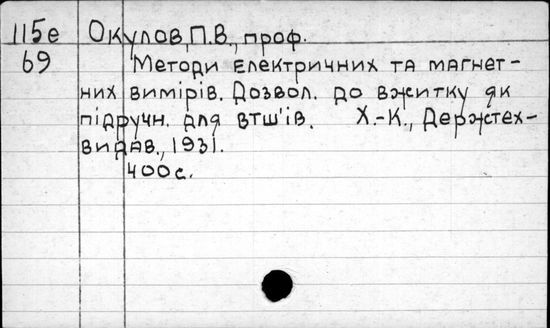 115е Окулов, П.В., проф.
69 Методи електричних та магнет-
них вимірів. Дозвол. до вжитку як
підручн. для втш'ів. Х.-К., Держтех-
видав., 1931.
400с.